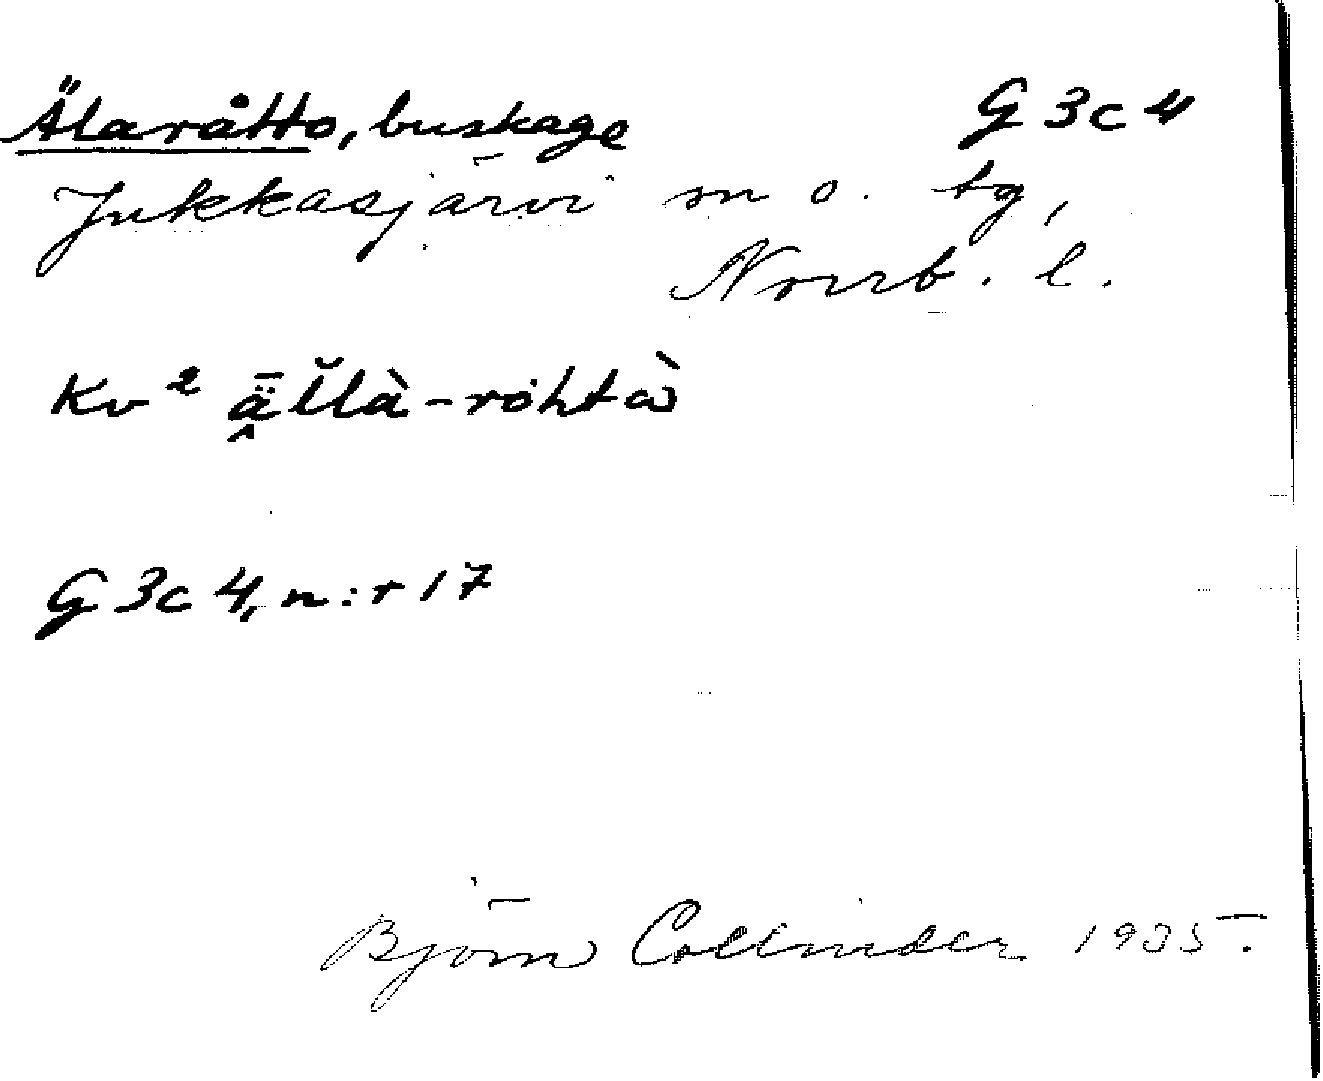 Älaråtto, buskage G 3c 4
Jukkasjärvi sn o. tg,
Norrb. l.
Kv² ǟ̭l̆là-rȯhtà
G 3c 4, n:r 17
Björn Collinder 1935.